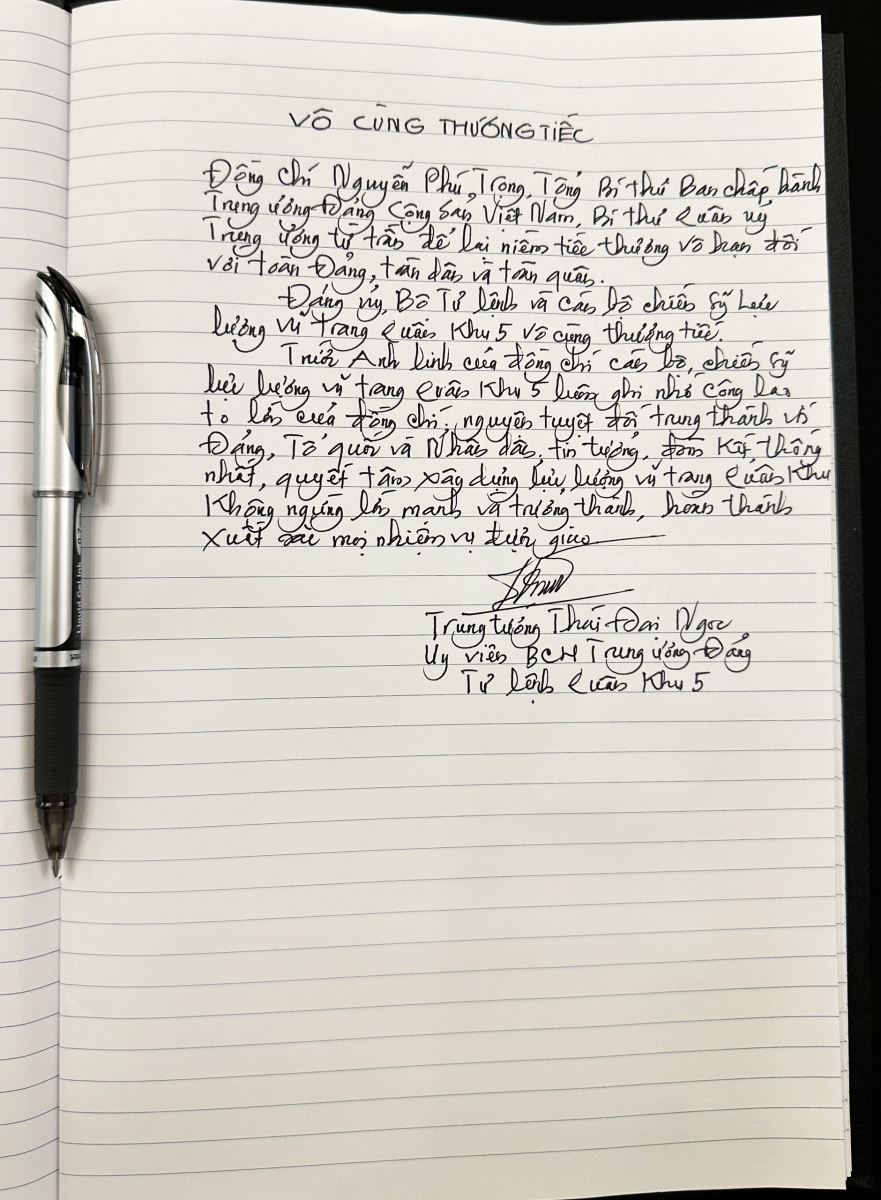 VÔ CÙNG THƯƠNG TIẾC
Đồng chí Nguyễn Phú Trọng, Tổng Bí thư Ban chấp hành
Trung ương Đảng Cộng sản Việt Nam, Bí thư Quân ủy
Trung ương từ trần để lại niềm tiếc thương vô hạn đối
với toàn Đảng, toàn dân và toàn quân.
Đảng ủy, Bộ Tư lệnh và cán bộ chiến sỹ Lực
lượng vũ trang Quân Khu 5 vô cùng thương tiếc.
Trước Anh linh của đồng chí cán bộ, chiến sỹ
lực lượng vũ trang Quân Khu 5 luôn ghi nhớ công lao
to lớn của đồng chí; nguyện tuyệt đối trung thành với
Đảng, Tổ quốc và Nhân dân, tin tưởng, đoàn kết, thống
nhất, quyết tâm xây dựng lực lượng vũ trang Quân Khu
không ngừng lớn mạnh và trưởng thành, hoàn thành
xuất sắc mọi nhiệm vụ được giao
Trung tướng Thái Đại Ngọc
Ủy viên BCH Trung ương Đảng
Tư lệnh Quân Khu 5
Liquid Gel Ink 0.7mm